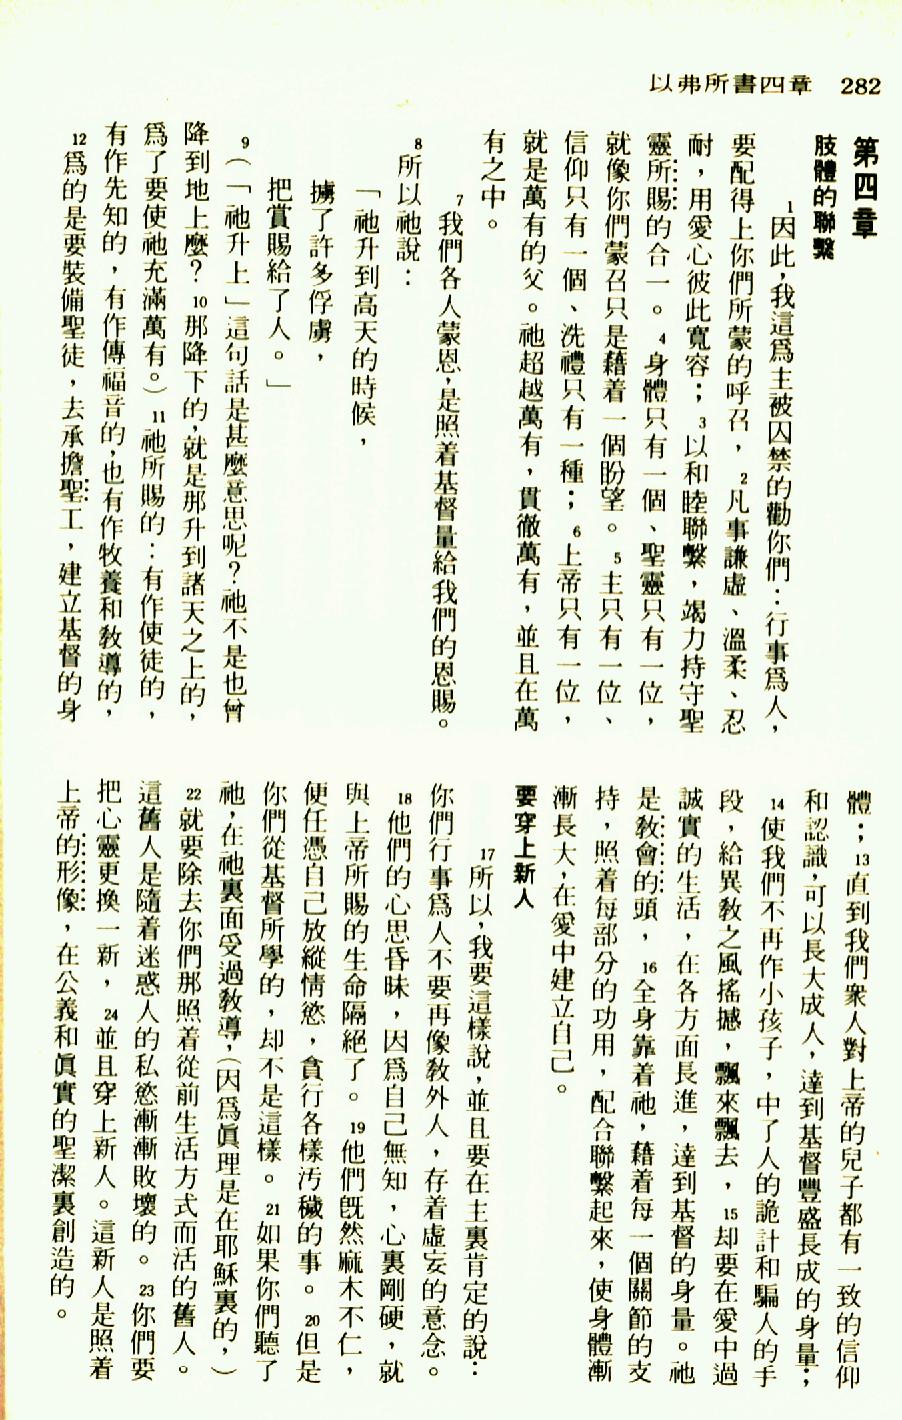 以弗所書四章 282
第四章
肢體的聯繫
1因此，我這爲主被囚禁的勸你們：行事爲人，
要配得上你們所蒙的呼召，2凡事謙虛、溫柔、忍
耐，用愛心彼此寬容；3以和睦聯繫，竭力持守聖
靈所賜的合一。4身體只有一個、聖靈只有一位，
就像你們蒙召只是藉着一個盼望。5主只有一位、
信仰只有一個、洗禮只有一種；6上帝只有一位，
就是萬有的父。祂超越萬有，貫徹萬有，並且在萬
有之中。
7我們各人蒙恩，是照着基督量給我們的恩賜。
8所以祂說：
「祂升到高天的時候，
擄了許多俘虜，
把賞賜給了人。」
9（「祂升上」這句話是甚麼意思呢？祂不是也曾
降到地上麼？10那降下的，就是那升到諸天之上的，
爲了要使祂充滿萬有。）11祂所賜的：有作使徒的，
有作先知的，有作傳福音的，也有作牧養和教導的，
12爲的是要裝備聖徒，去承擔聖工，建立基督的身
體；13直到我們衆人對上帝的兒子都有一致的信仰
和認識，可以長大成人，達到基督豐盛長成的身量；
14使我們不再作小孩子，中了人的詭計和騙人的手
段，給異教之風搖撼，飄來飄去，15却要在愛中過
誠實的生活，在各方面長進，達到基督的身量。祂
是教會的頭，16全身靠着祂，藉着每一個關節的支
持，照着每部分的功用，配合聯繫起來，使身體漸
漸長大，在愛中建立自己。
要穿上新人
17所以，我要這樣說，並且要在主裏肯定的說：
你們行事爲人不要再像教外人，存着虛妄的意念。
18他們的心思昏昧，因爲自己無知，心裏剛硬，就
與上帝所賜的生命隔絕了。19他們既然麻木不仁，
便任憑自己放縱情慾，貪行各樣污穢的事。20但是
你們從基督所學的，却不是這樣。21如果你們聽了
祂，在祂裏面受過教導，（因爲眞理是在耶穌裏的，）
22就要除去你們那照着從前生活方式而活的舊人。
這舊人是隨着迷惑人的私慾漸漸敗壞的。23你們要
把心靈更換一新，24並且穿上新人。這新人是照着
上帝的形像，在公義和眞實的聖潔裏創造的。